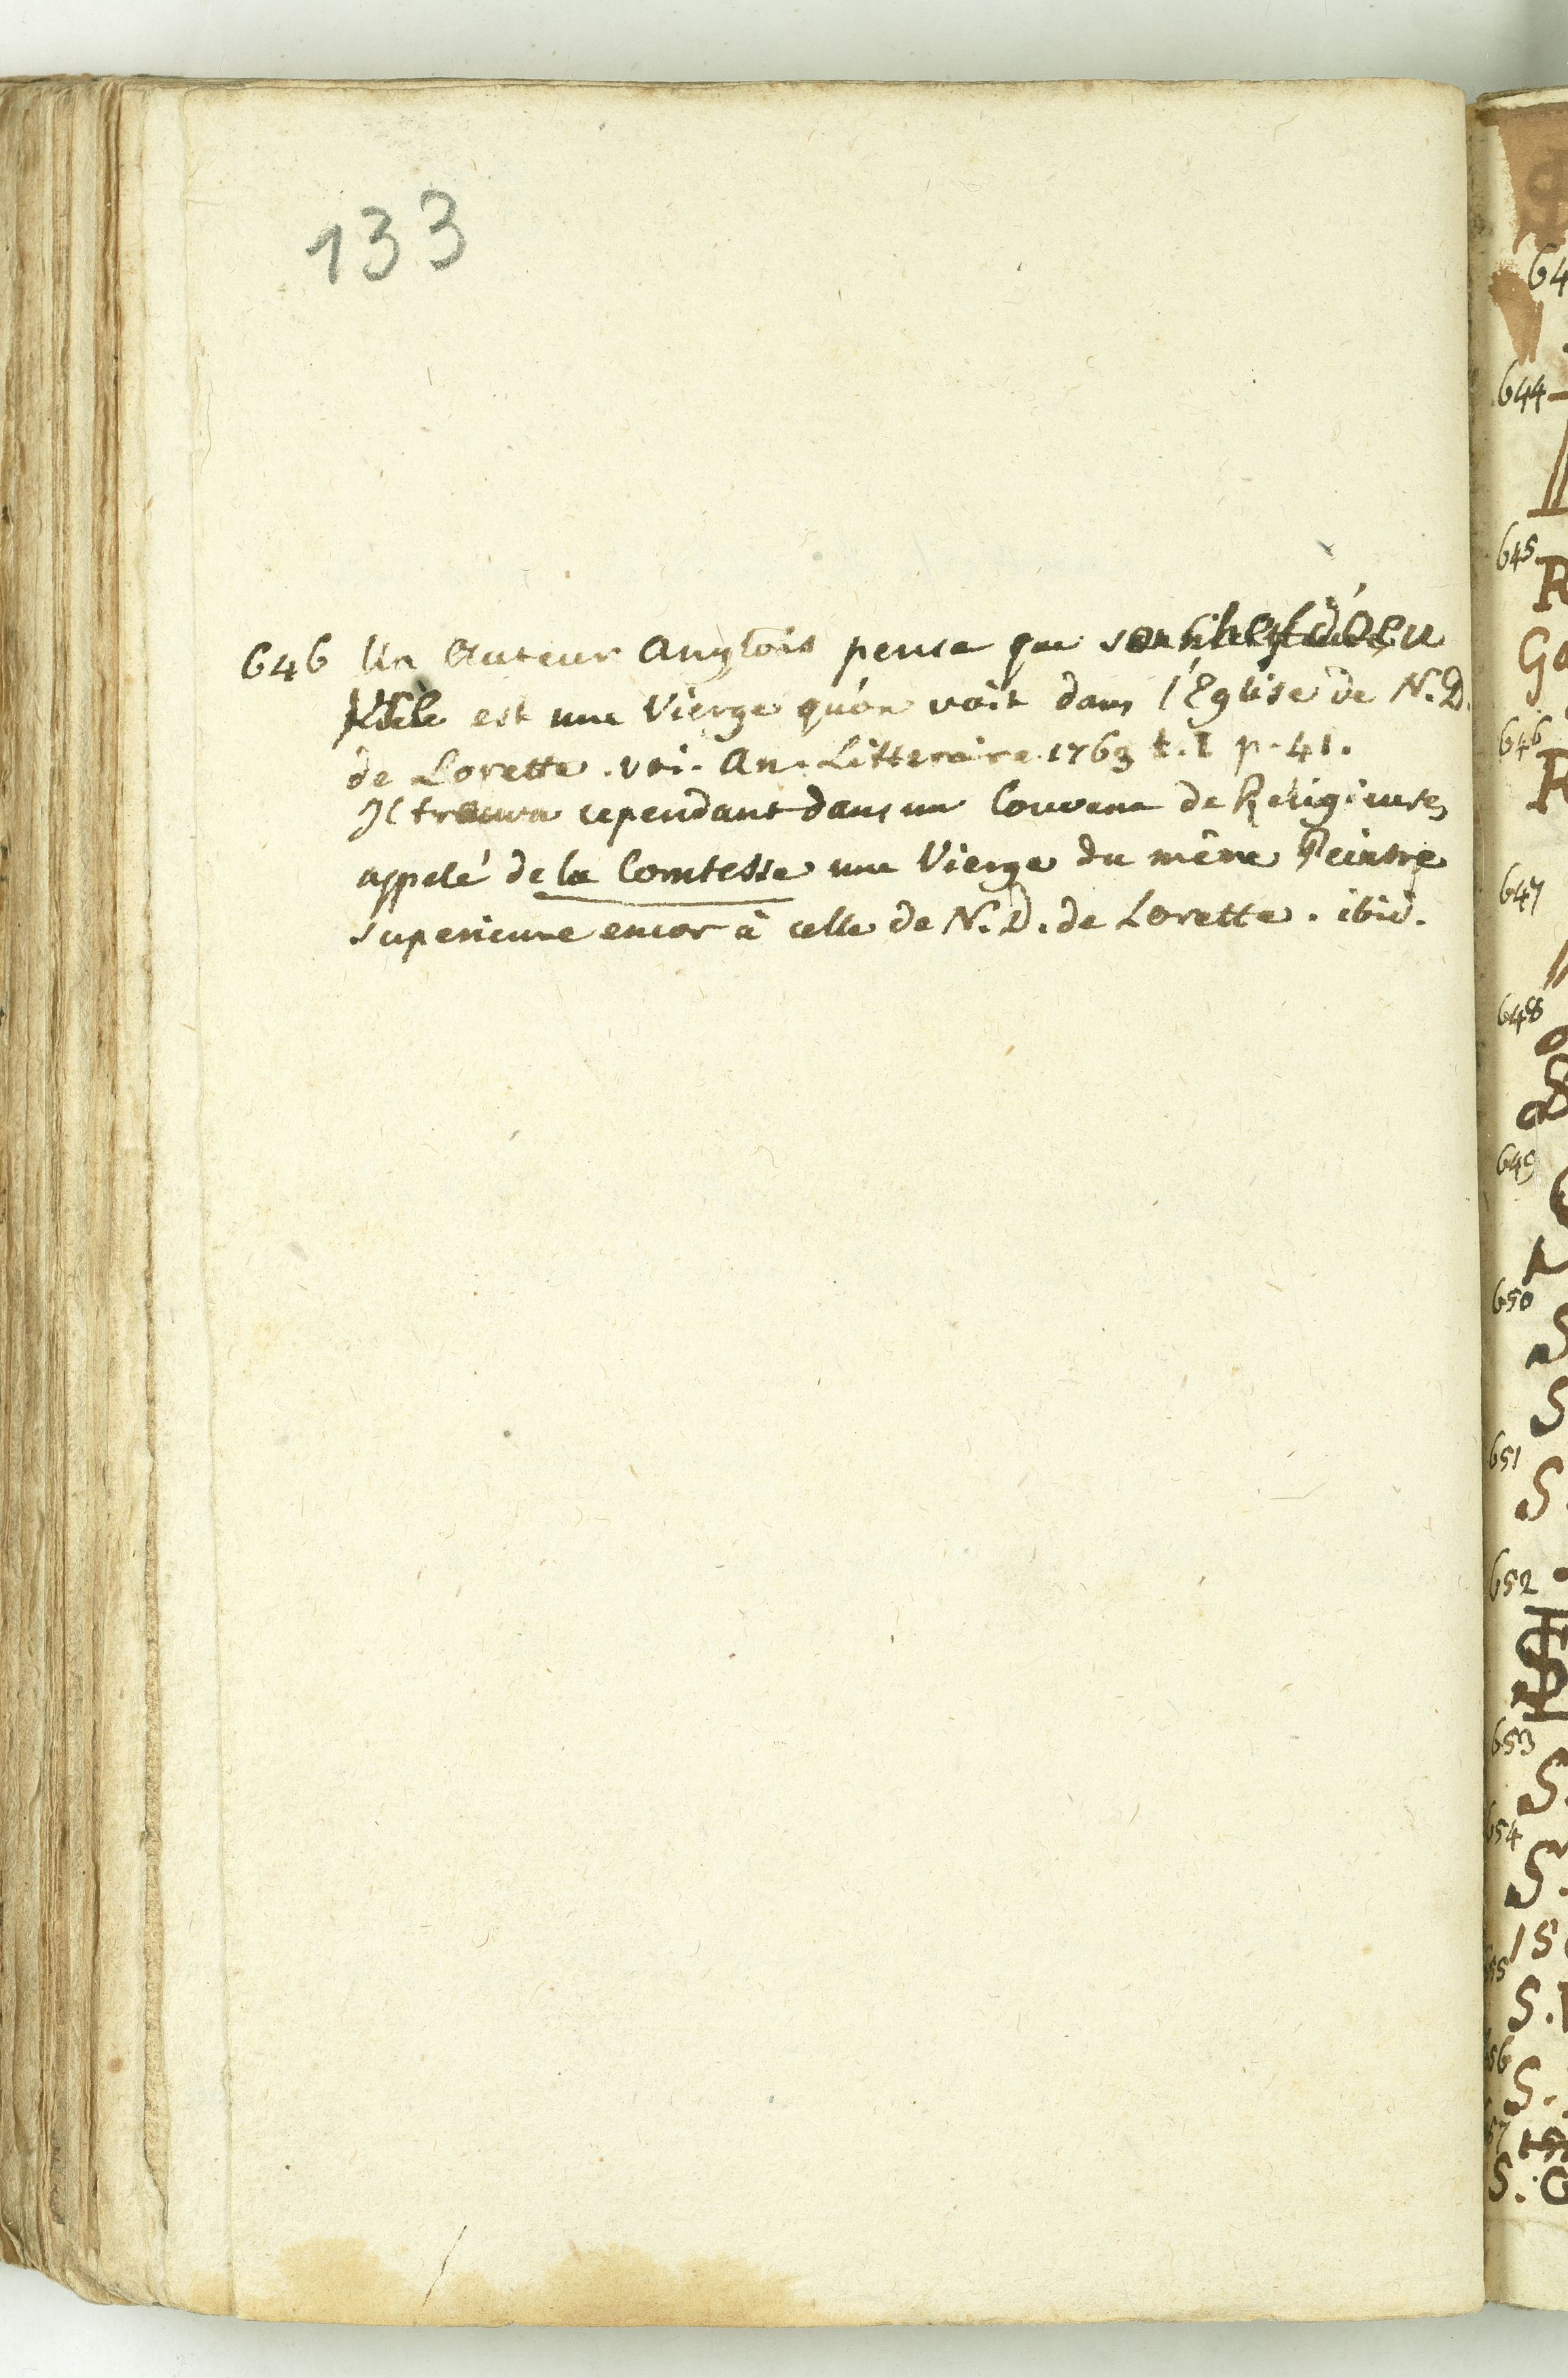 133
646 Un Auteur Anglois pense que son chef d'oeu
est une Vierge qu'on voit dans l'Eglise de N. D.
de Lorette. voi. An. Litteraire 1763 t. I p. 41.
Il trouva cependant dans un Couvent de Religieuses
appelé de la Comtesse une Vierge du même Peintre
superieure encor à celle de N. D. de Lorette. ibid.
64
644
645
R
Go
646
R
647
648
649
650
S
S
651
S
652
653
S.
654
S.
15
S.
S.
S. G